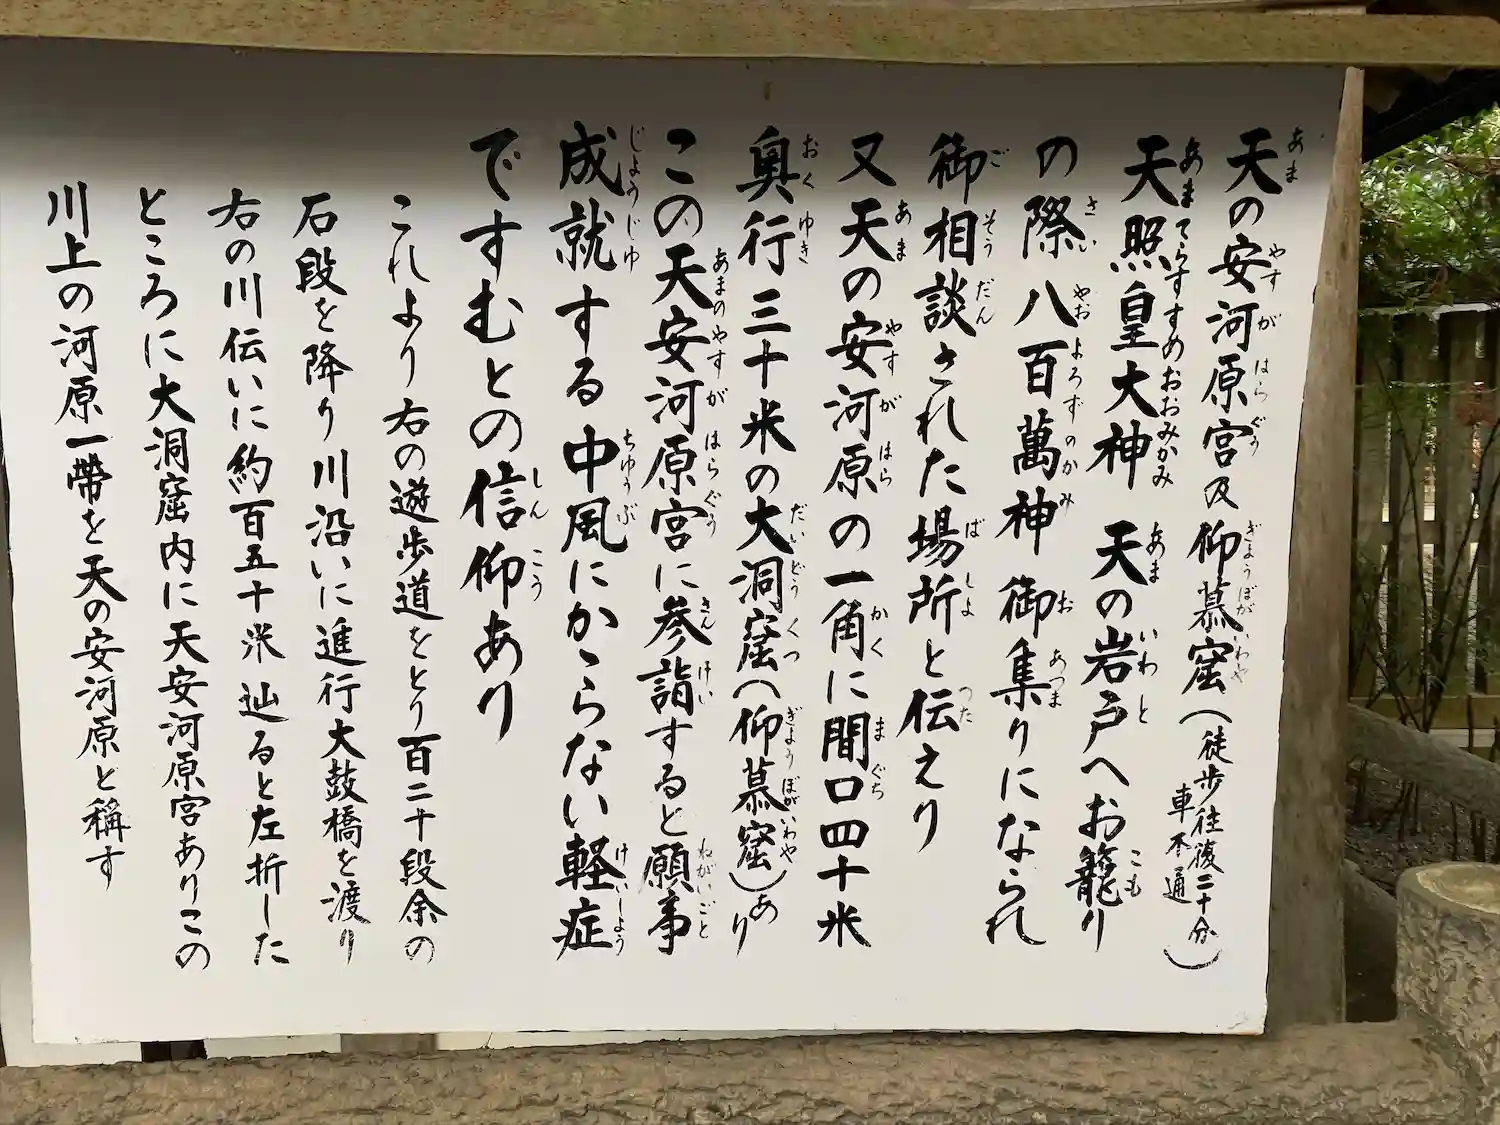 天の安河原宮及仰慕窟(徒歩往復二十分 車不通)
天照皇大神 天の岩戸へお籠り
の際八百萬神御集りになられ
御相談された場所と伝えり
又天の安河原の一角に間口四十米
奥行三十米の大洞窟(仰慕窟)あり
この天安河原宮に参詣すると願事
成就する中風にかからない軽症
ですむとの信仰あり
これより右の遊歩道をとり百二十段余の
石段を降り川沿いに進行大鼓橋を渡り
右の川伝いに約百五十米辿ると左折した
ところに大洞窟内に天安河原宮ありこの
川上の河原一帶を天の安河原と稱す